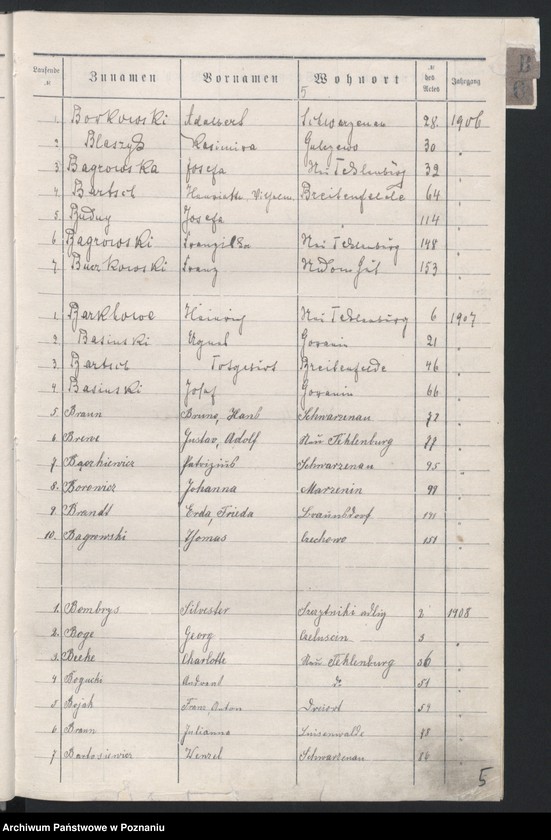 Laufende № Zunamen Vornamen Wohnort № des Actes Jahrgang
B
C
5
1. Borkowski Adalbert Schwarzenau 28 1906
2 Blaszyk Kasimira 30 "
3 Bagrowska Josefa Neu Tecklenburg 32 "
4. Bartsch Henriette, Wilhelm. Breitenfelde 64 "
5 Budny Josefa " 114 "
6 Bagrowski Franziska Neu Tecklenburg 148 "
7. Burkowski Franz 153 "
1. Barkhowe Heinrich Neu Tecklenburg 6 1907
2 Basinski Agnes Goranin 21 "
3. Bartsch Totgeburt Breitenfelde 46 "
4 Basinski Josef Goranin 66 "
5 Braun Bruno, Hans Schwarzenau "
6 Brewe Gustav, Adolf Neu Tecklenburg "
7 Patrizius Schwarzenau 95 "
8. Borowicz Johanna Marzenin 99 "
9. Brandt Erda, Frieda Braunsdorf "
10. Bagrowski Thomas Czechowo 151 "
1. Bombrys Silvester adlig 2 1908
2. Boge Georg 3 "
3. Beeke Charlotte Neu Tecklenburg 36 "
4 Bogucki Andreas do 51 "
5 Bojak Franz, Anton 59 "
6 Braun Julianna Luisenwalde 78 "
7 Bartosiewicz Wenzel Schwarzenau 84 "
5
Archiwum Państwowe w Poznaniu